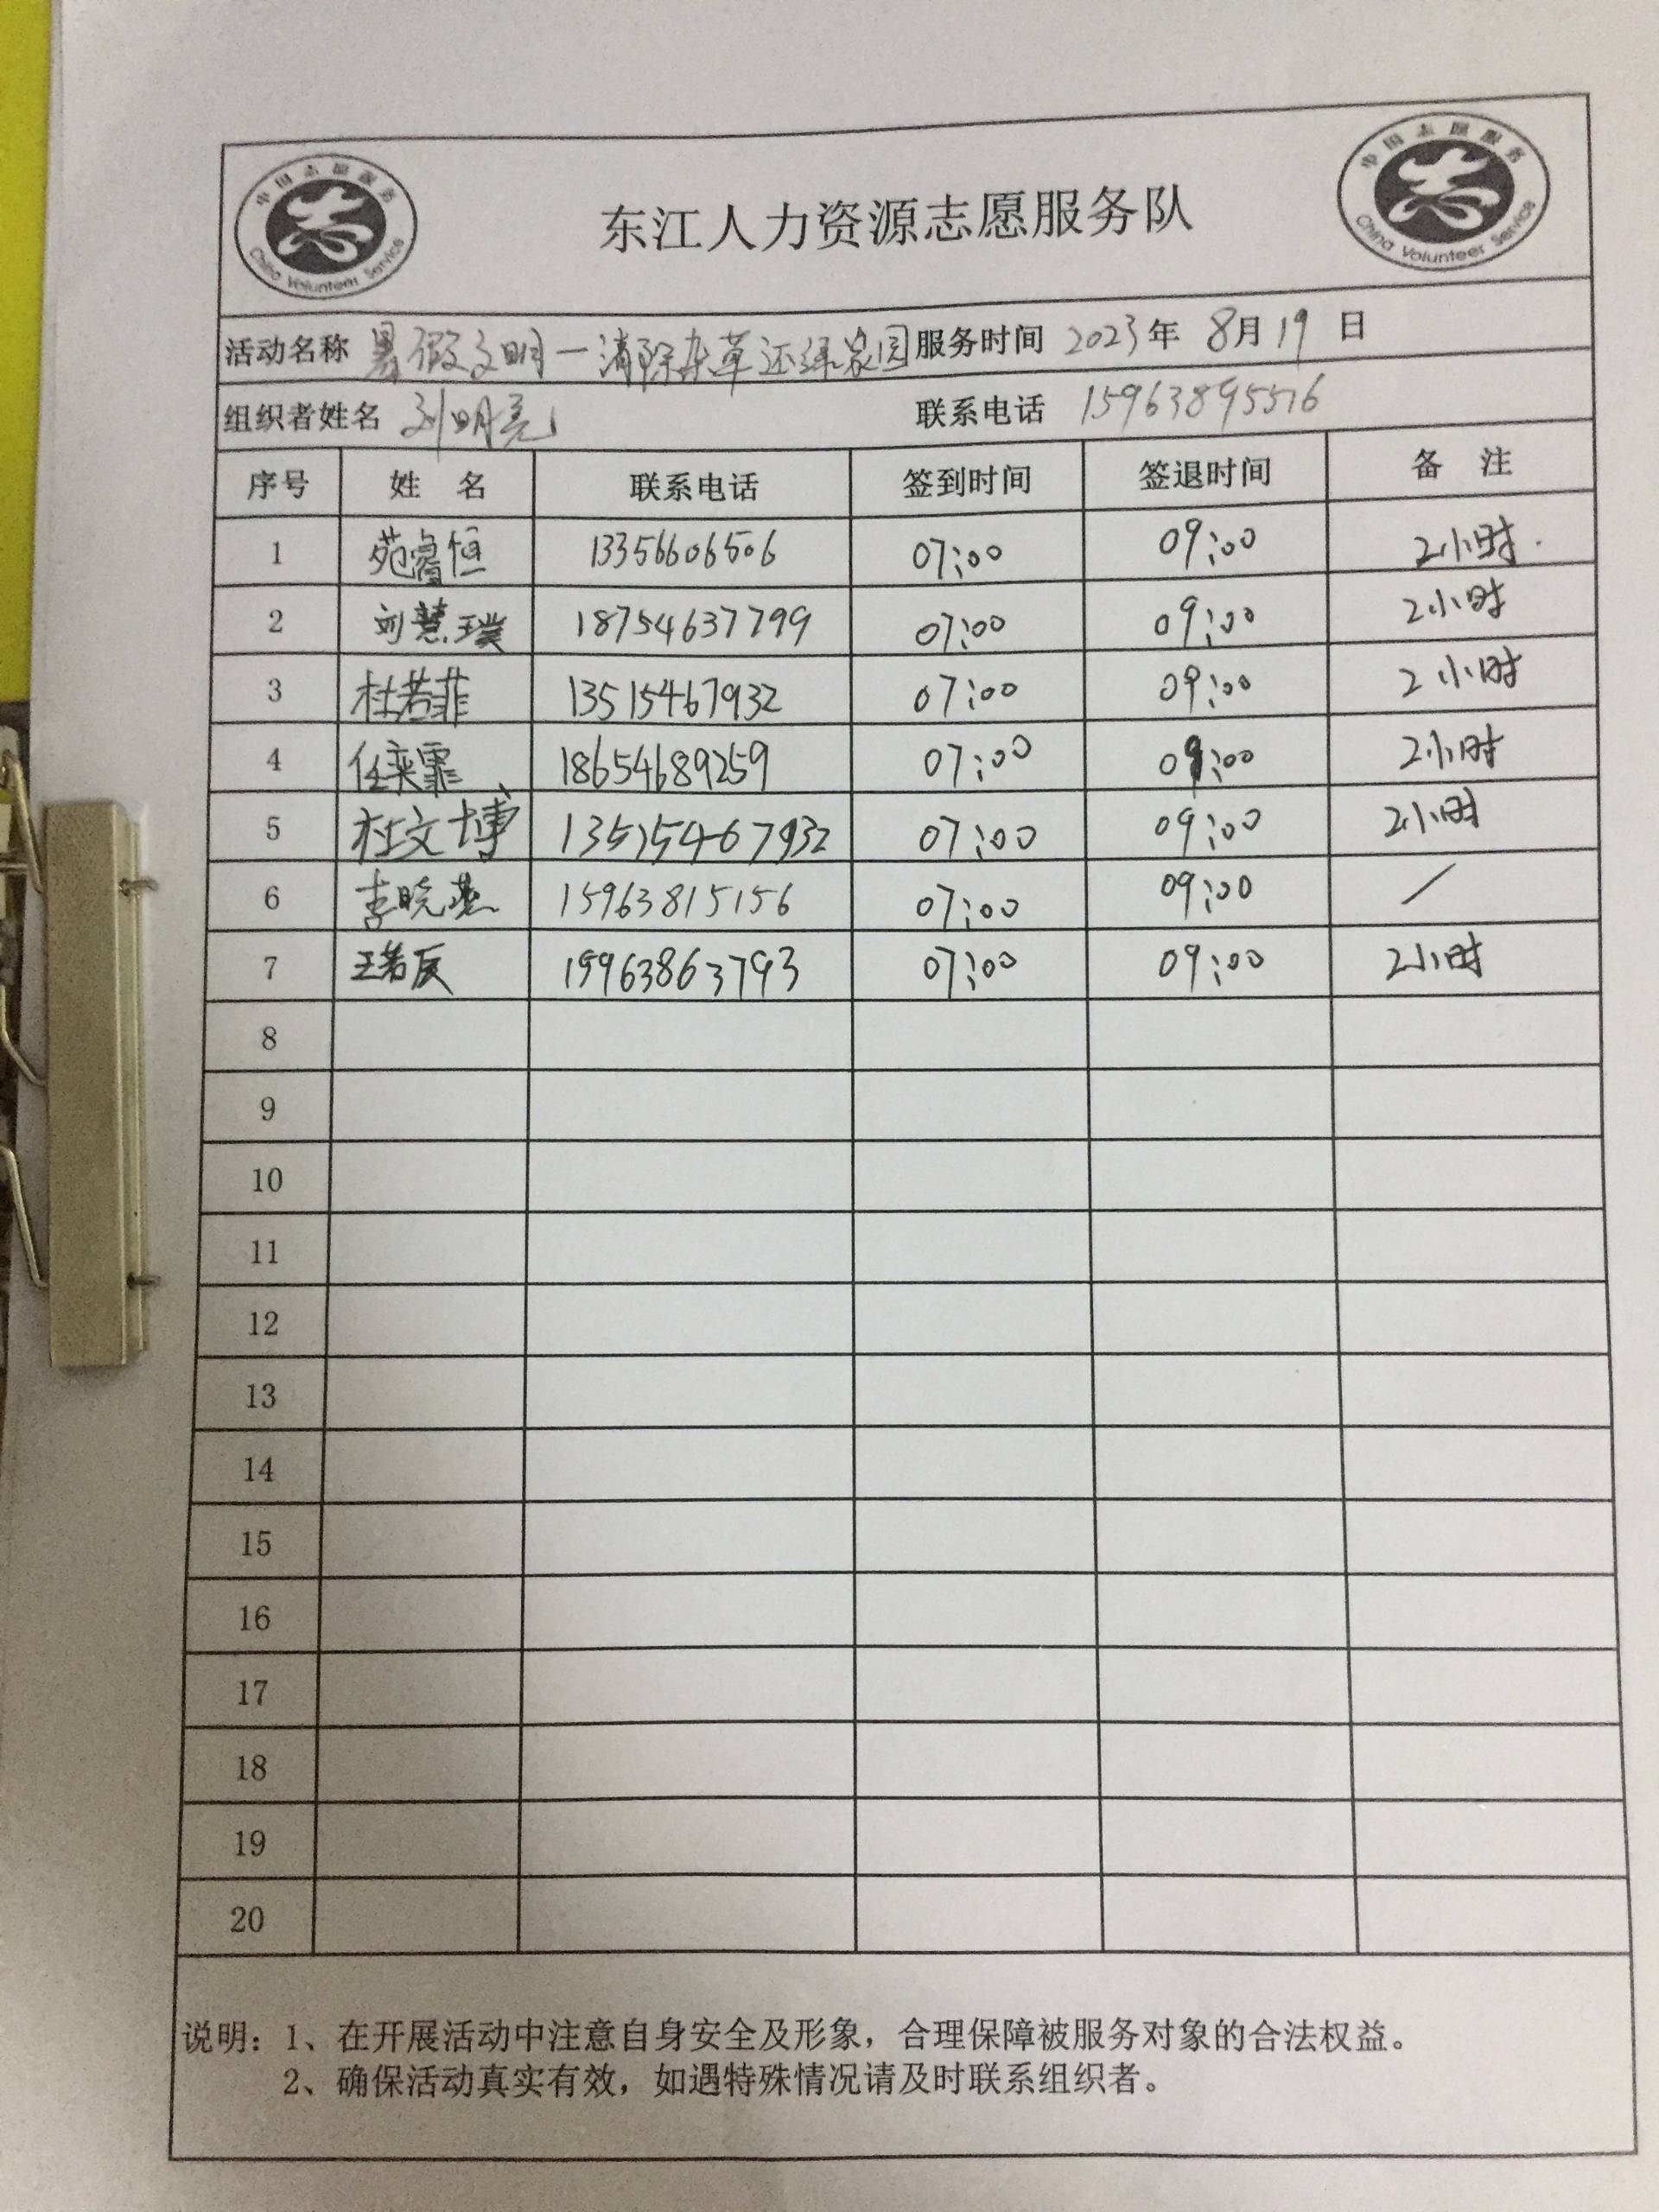 中国志愿服务
China Volunteer Service
东江人力资源志愿服务队
中国志愿服务
China Volunteer Service
活动名称 暑假文明一清除杂草还绿家园 服务时间 2023年 8月19日
组织者姓名 刘明亮 联系电话 15963895516
序号 姓 名 联系电话 签到时间 签退时间 备 注
1 苑睿恒 13356606506 07:00 09:00 2小时.
2 刘慧璞 18754637799 07:00 09:00 2小时
3 杜若菲 13515467932 07:00 09:00 2小时
4 任奕霏 18654689259 07:00 09:00 2小时
5 杜文博 13515467932 07:00 09:00 2小时
6 李晓燕 15963815156 07:00 09:00 /
7 王若辰 19963863793 07:00 09:00 2小时
8
9
10
11
12
13
14
15
16
17
18
19
20
说明：1、在开展活动中注意自身安全及形象，合理保障被服务对象的合法权益。
2、确保活动真实有效，如遇特殊情况请及时联系组织者。